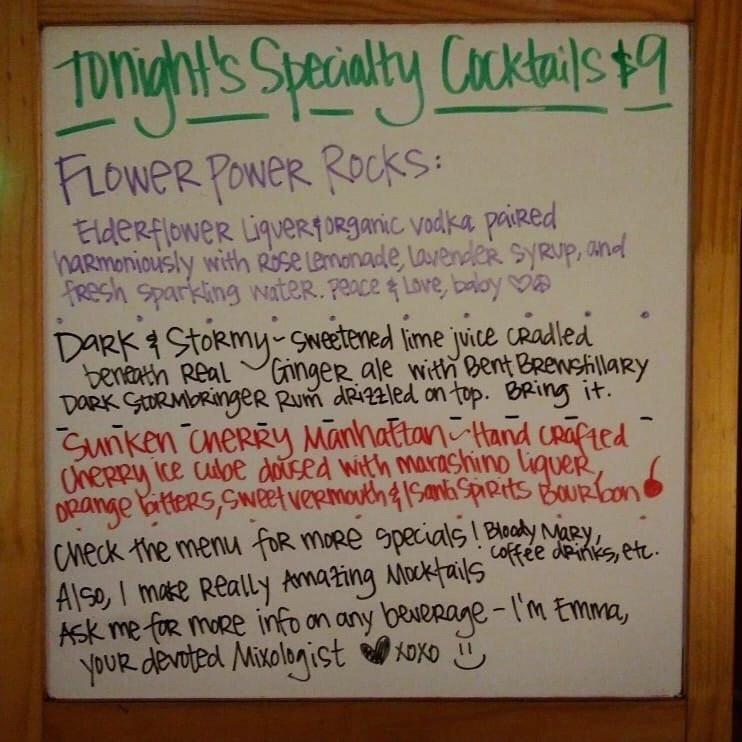 Tonight's Specialty Cocktails $9
Flower Power Rocks:
Elderflower Liquer & organic vodka paired
harmoniously with Rose Lemonade, lavender syrup, and
fresh sparkling water. Peace & Love, baby ♡☮
Dark & Stormy ~ sweetened lime juice cradled
beneath Real Ginger ale with Bent Brewstillary
Dark Stormbringer Rum drizzled on top. Bring it.
Sunken Cherry Manhattan ~ Hand crafted
cherry ice cube doused with marashino liquer,
orange bitters, sweet vermouth & Isanti Spirits Bourbon
Check the menu for more specials! Bloody Mary,
coffee drinks, etc.
Also, I make Really Amazing Mocktails
Ask me for more info on any beverage - I'm Emma,
your devoted Mixologist ♥ xoxo